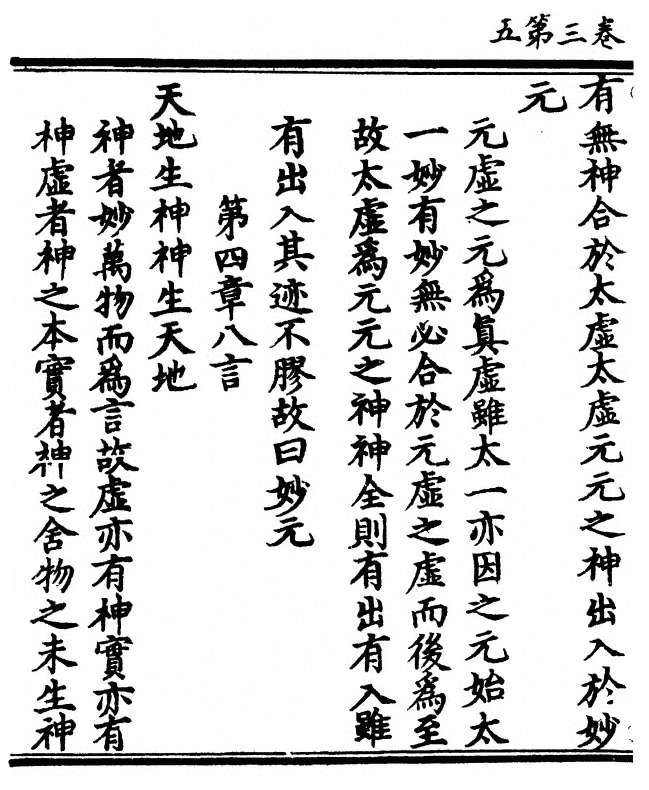 卷三第五
有無神合於太虛太虛元元之神出入於妙
元
元虛之元爲眞虛雖太一亦因之元始太
一妙有妙無必合於元虛之虛而後爲至
故太虛爲元元之神神全則有出有入雖
有出入其迹不膠故曰妙元
第四章八言
天地生神神生天地
神者妙萬物而爲言故虛亦有神實亦有
神虛者神之本實者神之舍物之未生神